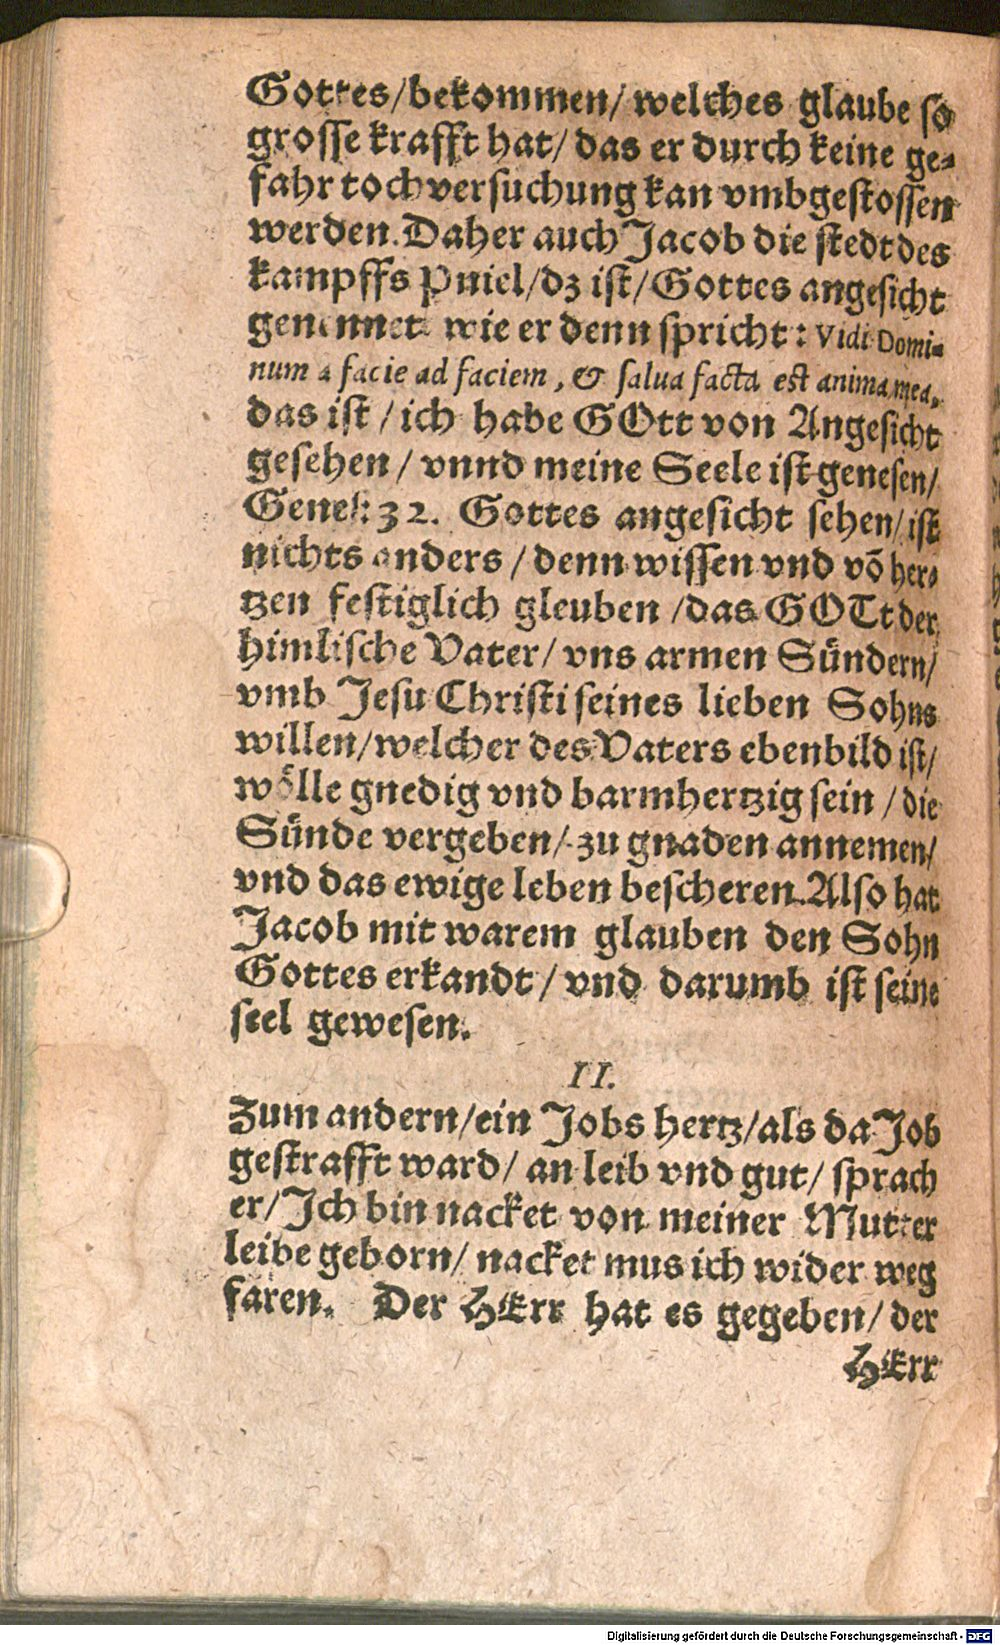 Gottes/bekommen/ welches glaube so
grosse krafft hat/ das er durch keine ge-
fahr toch versuchung kan vmbgestossen
werden. Daher auch Jacob die stedt des
kampffs Pniel/dz ist/Gottes angesicht
genennet wie er denn spricht: Vidi Domi-
num a facie ad faciem, & salua facta est anima mea,
das ist / ich habe GOtt von Angesicht
gesehen / vnnd meine Seele ist genesen/
Genes: 32. Gottes angesicht sehen/ ist
nichts anders / denn wissen vnd võ her-
tzen festiglich gleuben /das GOTt der
himlische Vater/ vns armen Sündern/
vmb Jesu Christi seines lieben Sohns
willen/welcher des Vaters ebenbild ist/
wölle gnedig vnd barmhertzig sein / die
Sünde vergeben/ zu gnaden annemen/
vnd das ewige leben bescheren. Also hat
Jacob mit warem glauben den Sohn
Gottes erkandt / vnd darumb ist seine
seel gewesen.
II.
Zum andern/ein Jobs hertz/als da Job
gestrafft ward/ an leib vnd gut/ sprach
er/Ich bin nacket von meiner Mutter
leibe geborn/ nacket mus ich wider weg
faren. Der HErr hat es gegeben/ der
HErr
Digitalisierung gefördert durch die Deutsche Forschungsgemeinschaft - DFG